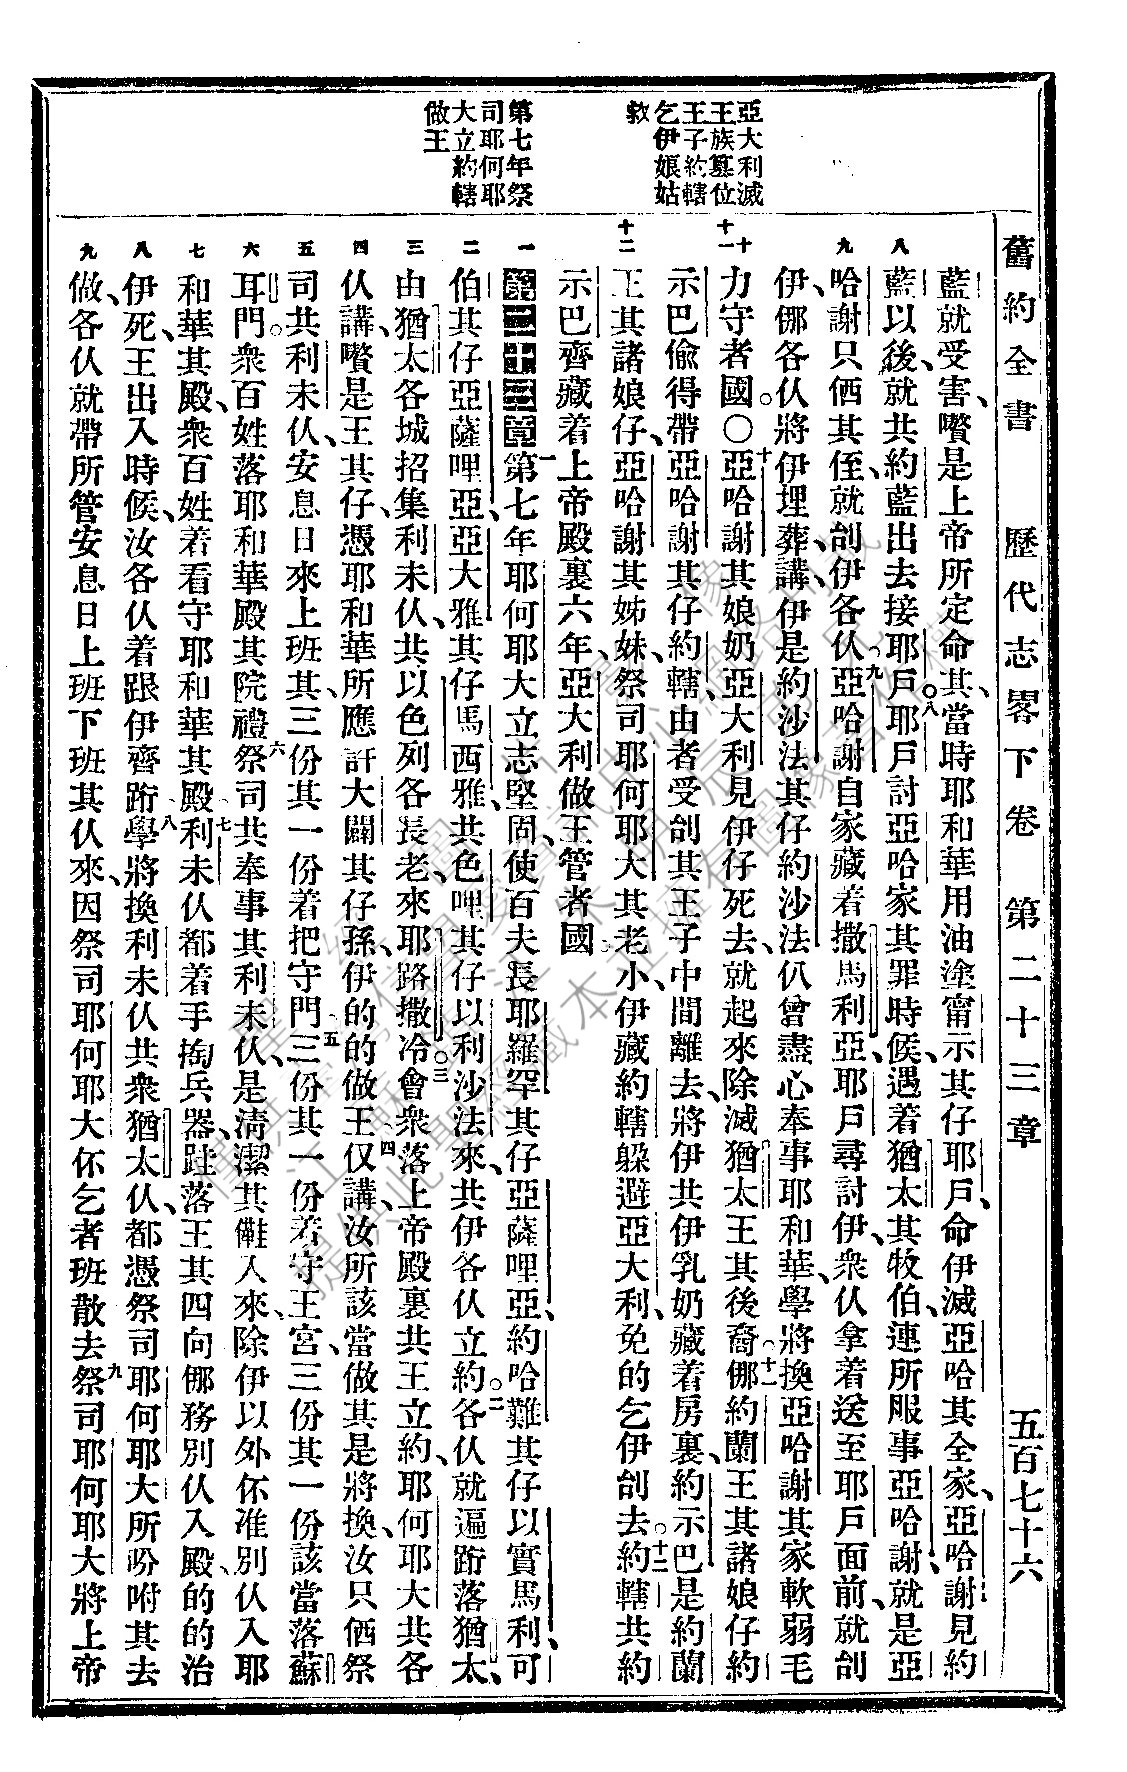 舊約全書 歷代志畧下卷 第二十三章 五百七十六
亞大利滅
王族篡位
王子約轄
乞伊娘姑
救
第七年祭
司耶何耶
大立約轄
做王
藍就受害、嚽是上帝所定命其、當時耶和華用油塗甯示其仔耶戶、命伊滅亞哈其全家、亞哈謝見約
八 藍以後、就共約藍出去接耶戶。八耶戶討亞哈家其罪時候、遇着猶太其牧伯、連所服事亞哈謝、就是亞
九 哈謝只俩其侄、就刣伊各仈、九亞哈謝自家藏着撒馬利亞、耶戶尋討伊、衆仈拿着送至耶戶面前、就刣
伊、㑚各仈將伊埋葬、講、伊是約沙法其仔、約沙法仈曾盡心奉事耶和華、學將換亞哈謝其家軟弱毛
十 十一 力守者國。〇十亞哈謝其娘奶亞大利見伊仔死去、就起來除滅猶太王其後裔。十一㑚約蘭王其諸娘仔約
示巴偸得帶亞哈謝其仔約轄、由者受刣其王子中間離去、將伊共伊乳奶藏着房裏、約示巴是約蘭
十二 王其諸娘仔、亞哈謝其姊妹、祭司耶何耶大其老小、伊藏約轄躲避亞大利、免的乞伊刣去。十二約轄共約
示巴齊藏着上帝殿裏六年、亞大利做王管者國
一 第二十三章 一第七年耶何耶大立志堅固、使百夫長耶羅罕其仔亞薩哩亞、約哈難其仔以實馬利、可
二 伯其仔亞薩哩亞、亞大雅其仔馬西雅、共色哩其仔以利沙法來、共伊各仈立約。二各仈就逼跲落猶太、
三 由猶太各城招集利未仈、共以色列各長老來耶路撒冷。三會衆落上帝殿裏共王立約、耶何耶大共各
四 仈講、嚽是王其仔、憑耶和華所應許大闢其仔孫、伊的的做王、四仅講、汝所該當做其是將換、汝只俩祭
五 司共利未仈、安息日來上班其、三份其一份着把守門、五三份其一份着守王宮、三份其一份該當落蘇
六 耳門。衆百姓落耶和華殿其院、六禮祭司共奉事其利未仈、是清潔其、㑚入來、除伊以外伓准別仈入耶
七 和華其殿、衆百姓着看守耶和華其殿、七利未仈都着手掏兵器、跬落王其四向、㑚務別仈入殿、的的治
八 伊死、王出入時候、汝各仈着跟伊齊跲、八學將換利未仈共衆猶太仈、都憑祭司耶何耶大所吩咐其去
九 做、各仈就帶所管安息日上班下班其仈來、因祭司耶何耶大伓乞者班散去、九祭司耶何耶大將上帝